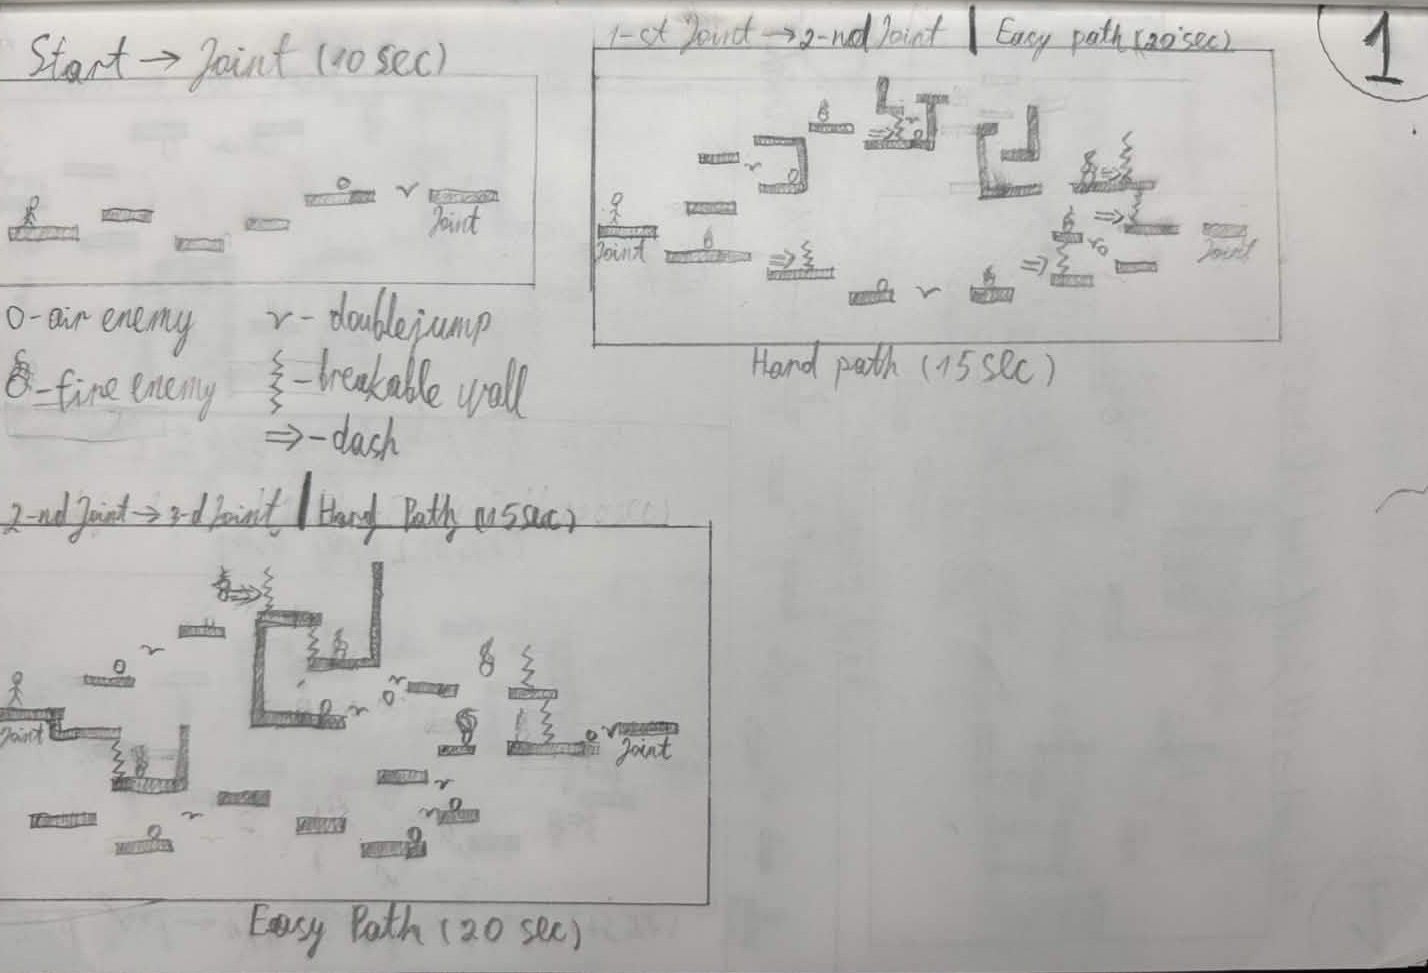 Start → Joint (10 sec)
Joint
1-st Joint → 2-nd Joint | Easy path (20 sec)
1
Joint
Joint
Hard path (15 sec)
0 - air enemy
v - doublejump
- fire enemy
- breakable wall
⇒ - dash
2-nd Joint → 3-d Joint | Hard Path (15 sec)
Joint
Joint
Easy Path (20 sec)